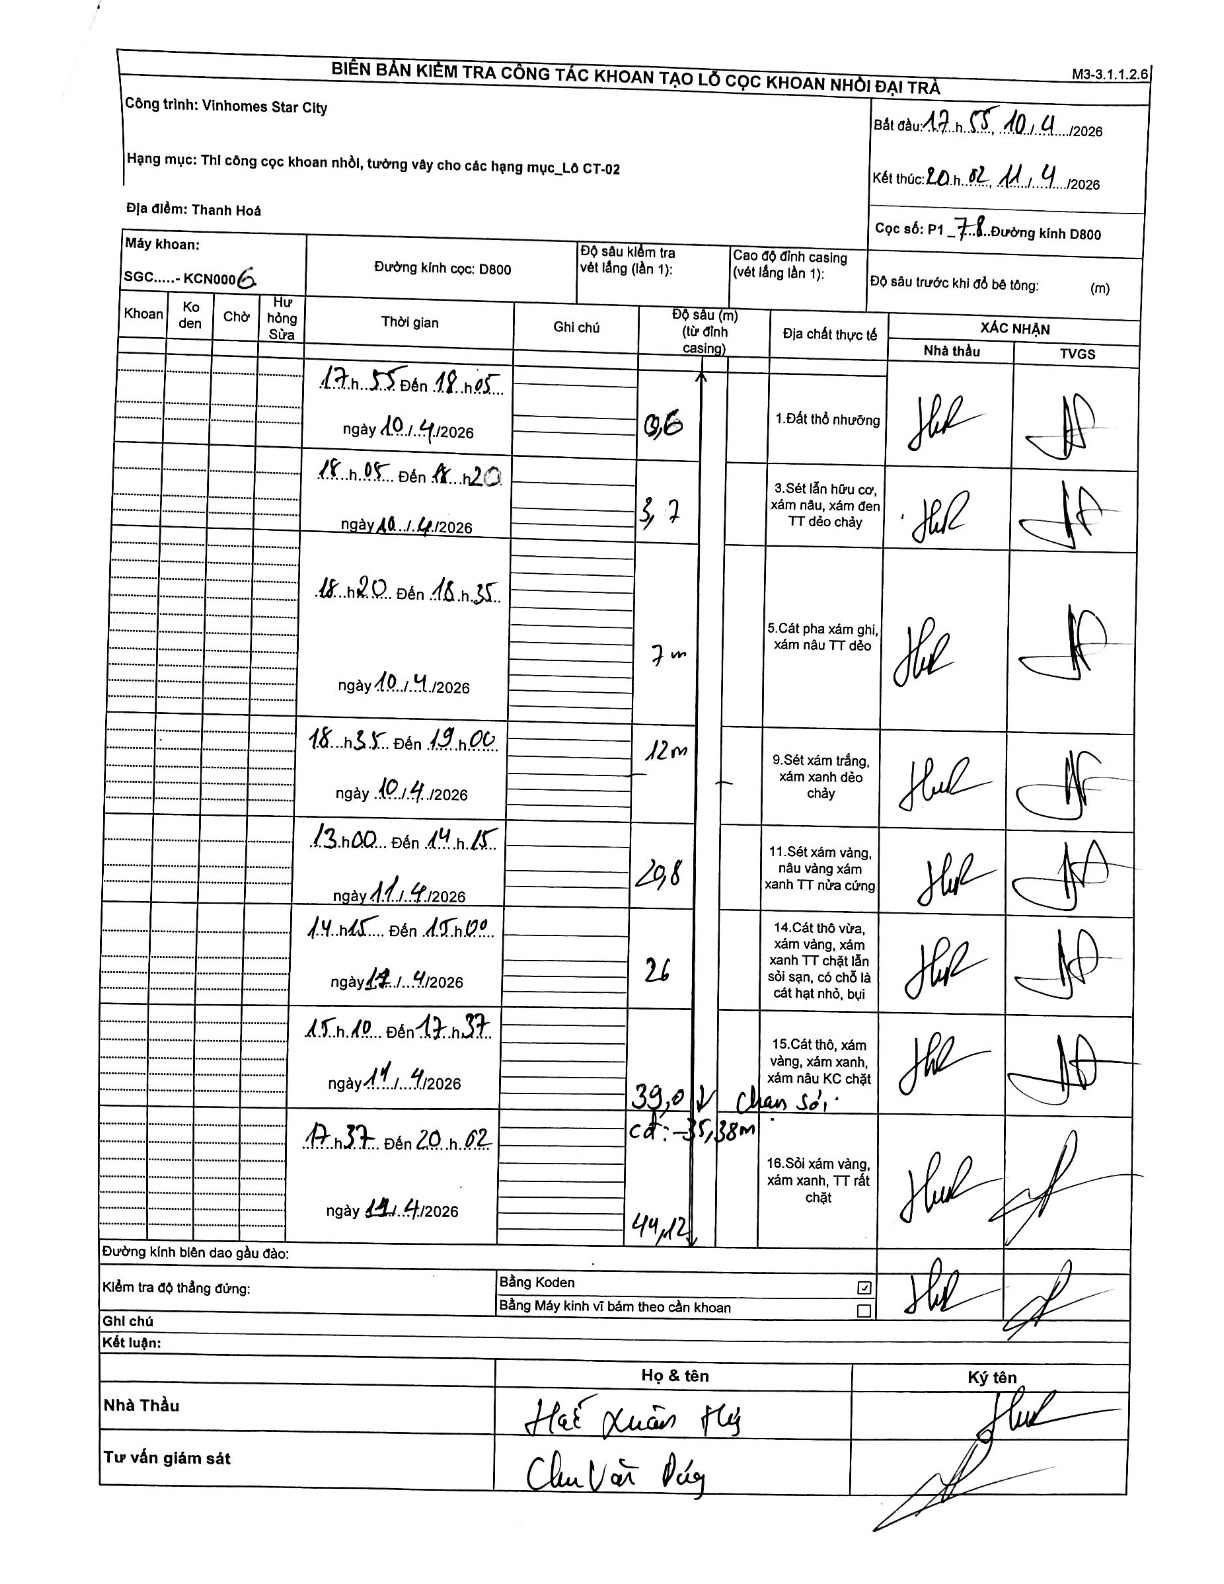 M3-3.1.1.2.6
BIÊN BẢN KIỂM TRA CÔNG TÁC KHOAN TẠO LỖ CỌC KHOAN NHỒI ĐẠI TRÀ
Công trình: Vinhomes Star City
Bắt đầu: 17 h 55, 10/4/2026
Hạng mục: Thi công cọc khoan nhồi, tường vây cho các hạng mục_Lô CT-02
Kết thúc: 20 h 02, 11/4/2026
Địa điểm: Thanh Hoá
Cọc số: P1_78 Đường kính D800
Máy khoan:
SGC.....- KCN0006
Đường kính cọc: D800
Độ sâu kiểm tra
vét lắng (lần 1):
Cao độ đỉnh casing
(vét lắng lần 1):
Độ sâu trước khi đổ bê tông: (m)
Khoan
Ko
den
Chờ
Hư
hỏng
Sửa
Thời gian
Ghi chú
Độ sâu (m)
(từ đỉnh
casing)
Địa chất thực tế
XÁC NHẬN
Nhà thầu
TVGS
17 h 55 Đến 18 h 05
ngày 10/4/2026
0,6
1.Đất thổ nhưỡng
18 h 05 Đến 18 h 20
ngày 10/4/2026
3,7
3.Sét lẫn hữu cơ,
xám nâu, xám đen
TT dẻo chảy
18 h 20 Đến 18 h 35
ngày 10/4/2026
7m
5.Cát pha xám ghi,
xám nâu TT dẻo
18 h 35 Đến 19 h 00
ngày 10/4/2026
12m
9.Sét xám trắng,
xám xanh dẻo
chảy
13 h 00 Đến 14 h 15
ngày 11/4/2026
20,8
11.Sét xám vàng,
nâu vàng xám
xanh TT nửa cứng
14 h 15 Đến 15 h 00
ngày 11/4/2026
26
14.Cát thô vừa,
xám vàng, xám
xanh TT chặt lẫn
sỏi sạn, có chỗ là
cát hạt nhỏ, bụi
15 h 10 Đến 17 h 37
ngày 11/4/2026
39,0
15.Cát thô, xám
vàng, xám xanh,
xám nâu KC chặt
Chạm sỏi
cđ: -35,38m
17 h 37 Đến 20 h 02
ngày 11/4/2026
44,12
16.Sỏi xám vàng,
xám xanh, TT rất
chặt
Đường kính biên dao gầu đào:
Kiểm tra độ thẳng đứng:
Bằng Koden
Bằng Máy kinh vĩ bám theo cần khoan
Ghi chú
Kết luận:
Họ & tên
Ký tên
Nhà Thầu
Xuân
Tư vấn giám sát
Chu Văn